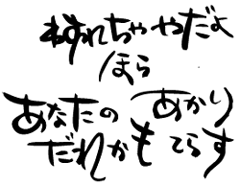 拗ねちゃやだよ
ほら
あなたの あかり
だれかも てらす